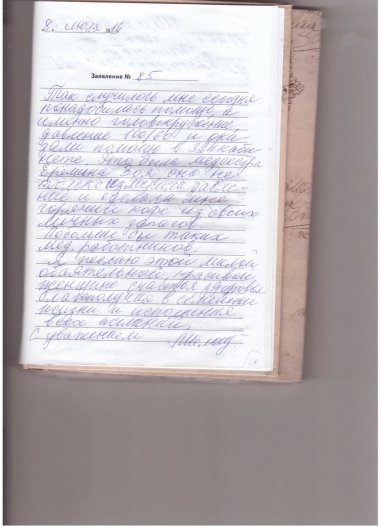 8. июля 2016
Заявление № 85
Так случилось мне сегодня
понадобилась помощь, а
именно головокружение,
давление 100/60 и ока-
зали помощь в 321 каби-
нете, это была медсестра
Еремина Зоя она не
только измерила давле-
ние и сделала мне
горячий кофе из своих
личных запасов
Побольше бы таких
мед работников.
Я желаю этой милой,
обаятельной, красивой
женщине счастья здоровья
благополучия в семейной
жизни и исполнения
всех желаний.
С уважением